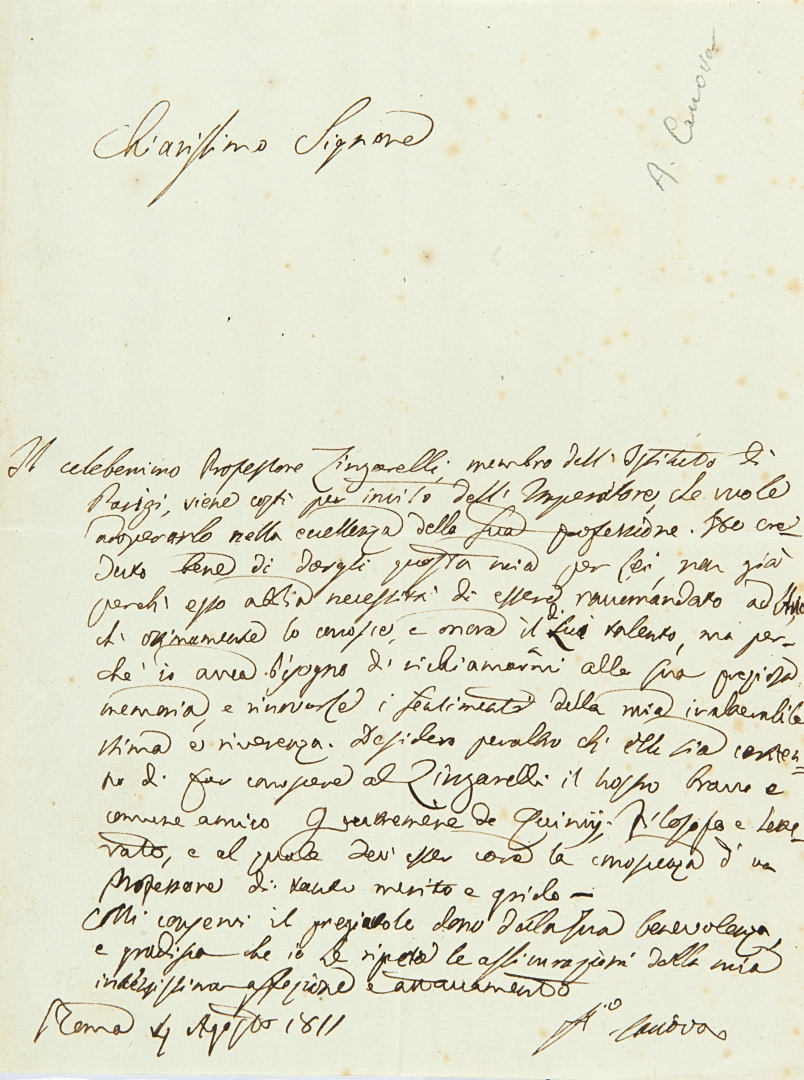 A. Canova
Chiarissimo Signore
Il celeberrimo Professore Zingarelli, membro dell' Istituto di
Parigi, viene costì per invito dell' Imperatore, che vuole
adoperarlo nella eccellenza della sua professione. Ho cre-
duto bene di dargli questa mia per Lei, non già
perchè esso abbia necessità di essere raccomandato ad
chi ottimamente lo conosce, e onora il di Lui talento, ma per-
chè io avea bisogno di richiamarmi alla sua preziosa
memoria, e rinovarle i sentimenti della mia inalterabile
stima e riverenza. Desidero peraltro ch' ella sia conten-
to di far conoscere al Zingarelli il nostro bravo e
comune amico Quatremère de Quincy, Filosofo e Lette-
rato, e al quale dev' esser cara la conoscenza d' un
Professore di tanto merito e grido —
Colli conservi il pregievole dono della sua benevolenza,
e gradisca che io Le ripeta le assicurazioni della mia
affezione e attaccamento
Roma 4 Agosto 1811
A.io Canova